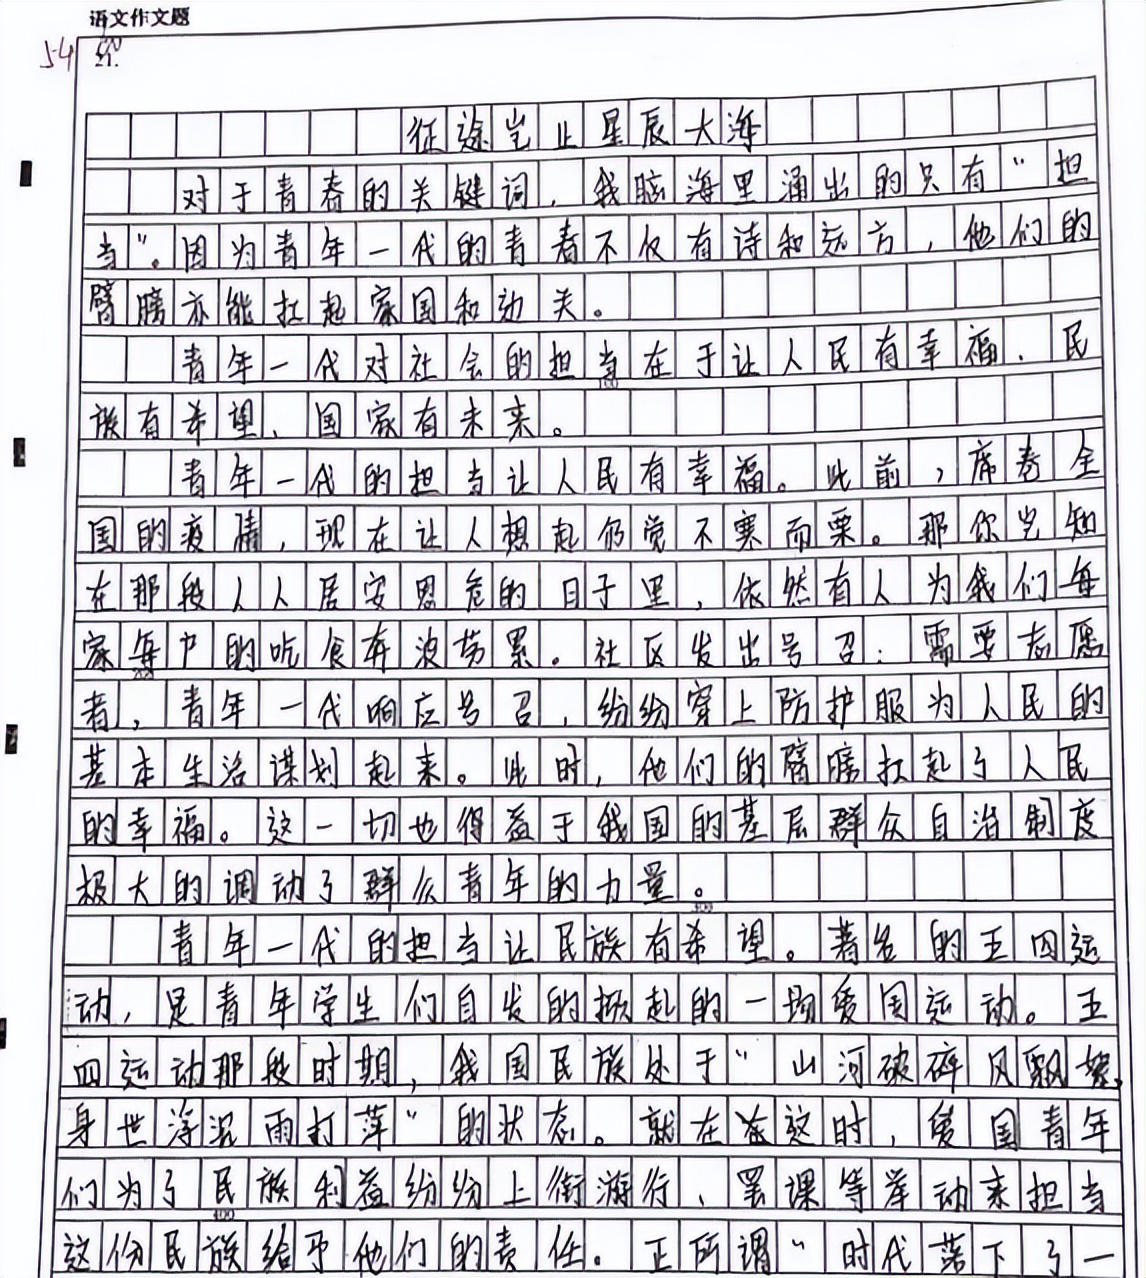 语文作文题
54
21.
征途岂止星辰大海
对于青春的关键词，我脑海里涌出的只有“担
当”。因为青年一代的青春不仅有诗和远方，他们的
臂膀亦能扛起家国和功夫。
青年一代对社会的担当在于让人民有幸福、民
100
族有希望、国家有未来。
青年一代的担当让人民有幸福。此前，席卷全
国的疫情，现在让人想起仍觉不寒而栗。那你岂知
在那段人人居安思危的日子里，依然有人为我们每
家每户的吃食奔波劳累。社区发出号召：需要志愿
200
者，青年一代响应号召，纷纷穿上防护服为人民的
基本生活谋划起来。此时，他们的臂膀扛起了人民
的幸福。这一切也得益于我国的基层群众自治制度
极大的调动了群众青年的力量。
300
青年一代的担当让民族有希望。著名的五四运
动，是青年学生们自发的掀起的一场爱国运动。五
四运动那段时期，我国民族处于“山河破碎风飘絮，
身世浮沉雨打萍”的状态。就在这时，爱国青年
们为了民族利益纷纷上街游行、罢课等举动来担当
400
这份民族给予他们的责任。正所谓“时代落下了一